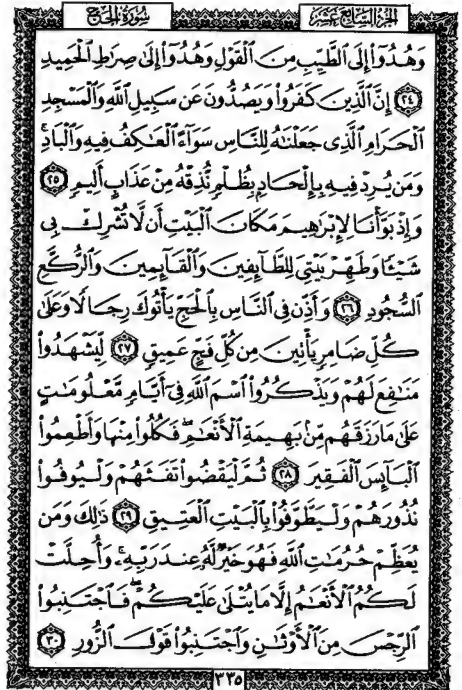 سُورَةُ الحَجِّ الجزء السابع عشر
وَهُدُوٓاْ إِلَى ٱلطَّيِّبِ مِنَ ٱلۡقَوۡلِ وَهُدُوٓاْ إِلَىٰ صِرَٰطِ ٱلۡحَمِيدِ
٢٤ إِنَّ ٱلَّذِينَ كَفَرُواْ وَيَصُدُّونَ عَن سَبِيلِ ٱللَّهِ وَٱلۡمَسۡجِدِ
ٱلۡحَرَامِ ٱلَّذِي جَعَلۡنَٰهُ لِلنَّاسِ سَوَآءً ٱلۡعَٰكِفُ فِيهِ وَٱلۡبَادِۚ
وَمَن يُرِدۡ فِيهِ بِإِلۡحَادِۭ بِظُلۡمٖ نُّذِقۡهُ مِنۡ عَذَابٍ أَلِيمٖ ٢٥
وَإِذۡ بَوَّأۡنَا لِإِبۡرَٰهِيمَ مَكَانَ ٱلۡبَيۡتِ أَن لَّا تُشۡرِكۡ بِي
شَيۡـٔٗا وَطَهِّرۡ بَيۡتِيَ لِلطَّآئِفِينَ وَٱلۡقَآئِمِينَ وَٱلرُّكَّعِ
ٱلسُّجُودِ ٢٦ وَأَذِّن فِي ٱلنَّاسِ بِٱلۡحَجِّ يَأۡتُوكَ رِجَالٗا وَعَلَىٰ
كُلِّ ضَامِرٖ يَأۡتِينَ مِن كُلِّ فَجٍّ عَمِيقٖ ٢٧ لِّيَشۡهَدُواْ
مَنَٰفِعَ لَهُمۡ وَيَذۡكُرُواْ ٱسۡمَ ٱللَّهِ فِيٓ أَيَّامٖ مَّعۡلُومَٰتٍ
عَلَىٰ مَا رَزَقَهُم مِّنۢ بَهِيمَةِ ٱلۡأَنۡعَٰمِۖ فَكُلُواْ مِنۡهَا وَأَطۡعِمُواْ
ٱلۡبَآئِسَ ٱلۡفَقِيرَ ٢٨ ثُمَّ لۡيَقۡضُواْ تَفَثَهُمۡ وَلۡيُوفُواْ
نُذُورَهُمۡ وَلۡيَطَّوَّفُواْ بِٱلۡبَيۡتِ ٱلۡعَتِيقِ ٢٩ ذَٰلِكَۖ وَمَن
يُعَظِّمۡ حُرُمَٰتِ ٱللَّهِ فَهُوَ خَيۡرٞ لَّهُۥ عِندَ رَبِّهِۦۗ وَأُحِلَّتۡ
لَكُمُ ٱلۡأَنۡعَٰمُ إِلَّا مَا يُتۡلَىٰ عَلَيۡكُمۡۖ فَٱجۡتَنِبُواْ
ٱلرِّجۡسَ مِنَ ٱلۡأَوۡثَٰنِ وَٱجۡتَنِبُواْ قَوۡلَ ٱلزُّورِ ٣٠
٣٣٥